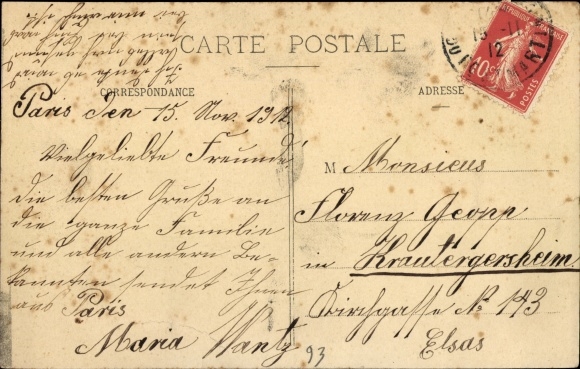 CARTE POSTALE
CORRESPONDANCE
ADRESSE
RÉPUBLIQUE FRANÇAISE
10c
POSTES
15 -11
12
Paris Den 15. Nov. 1912
Vielgeliebte Freunde
Die besten Grüße an
die ganze Familie
und alle andern Be-
kannten sendet Ihnen
aus Paris
Maria Wantz
93
M Monsieus
Florenz Gropp
in Krautergersheim
Kirchgasse No 143
Elsas